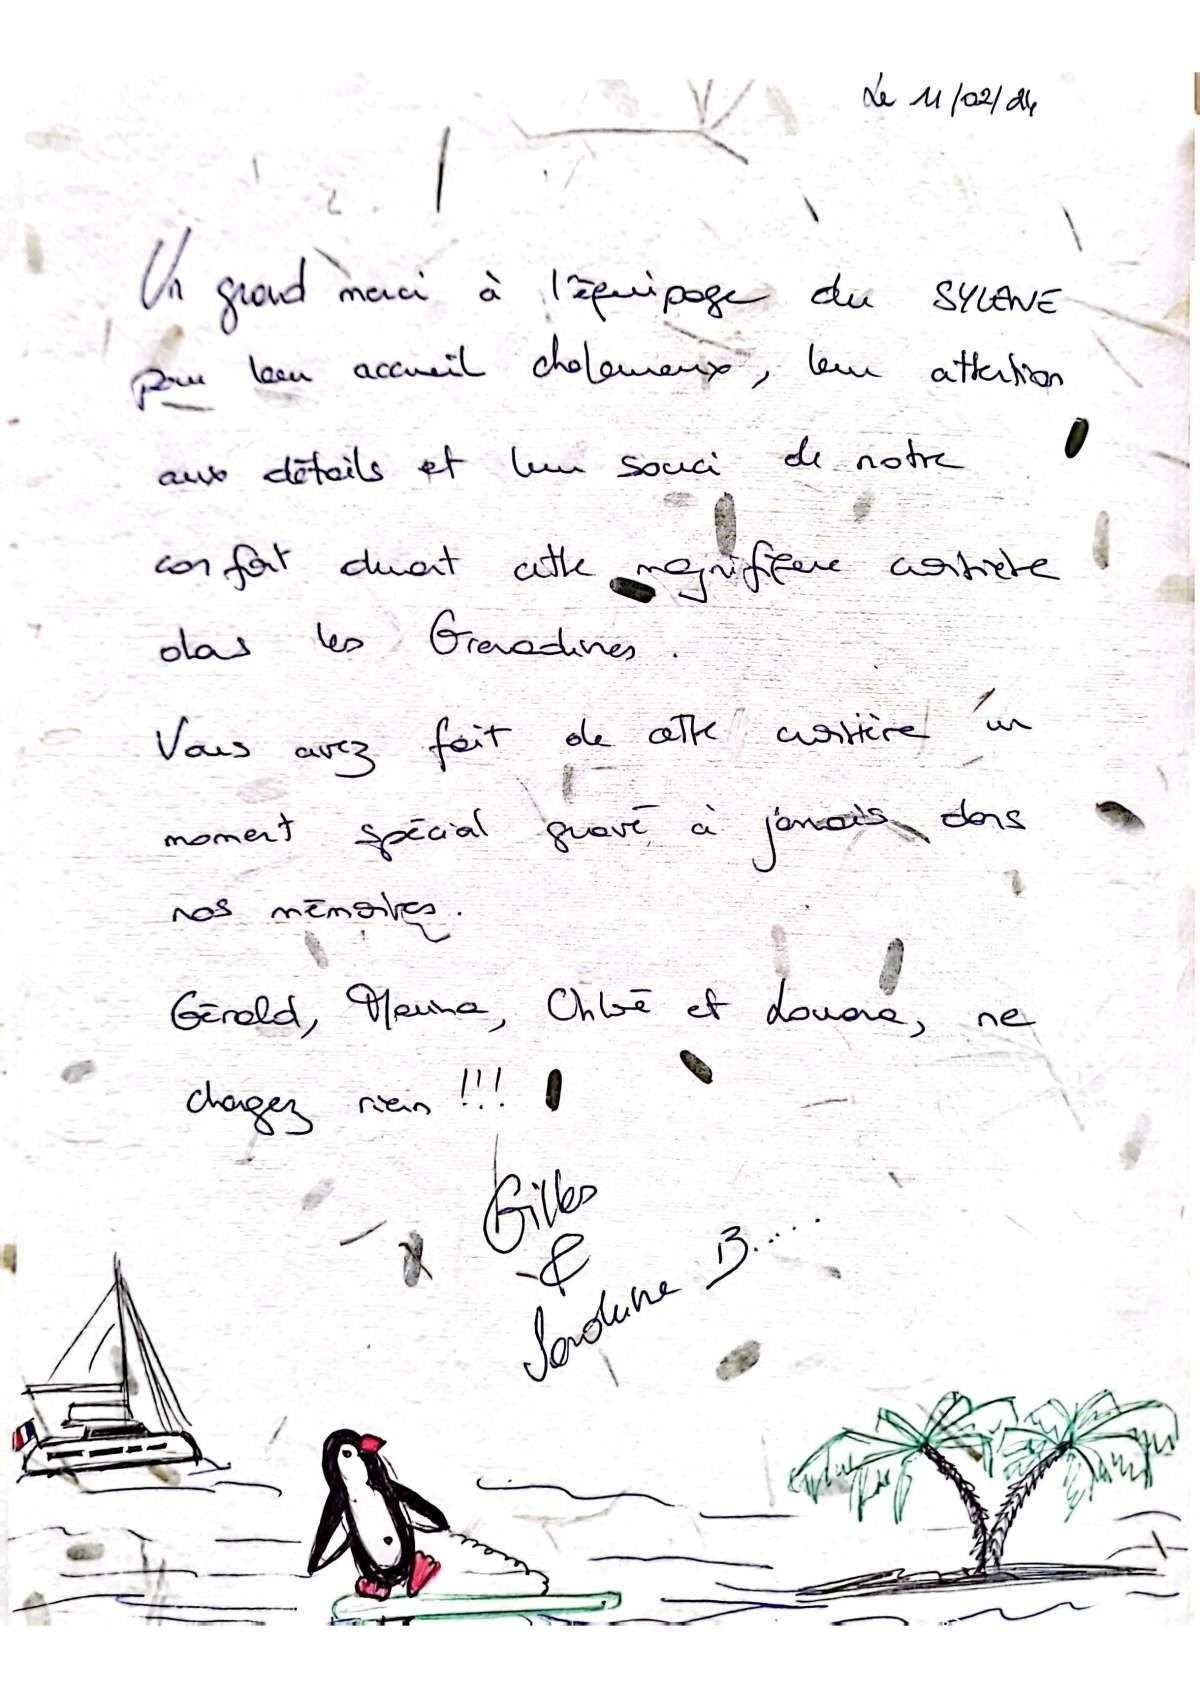 Le 11/02/24
Un grand merci à l'équipage du SYLENE
pour leur accueil chaleureux, leur attention
aux détails et leur souci de notre
confort durant cette magnifique croisière
dans les Grenadines.
Vous avez fait de cette croisière un
moment spécial gravé à jamais dans
nos mémoires.
Gérald, Marina, Chloé et Louane, ne
changez rien !!!
Gilles
&
Sandrine B.....